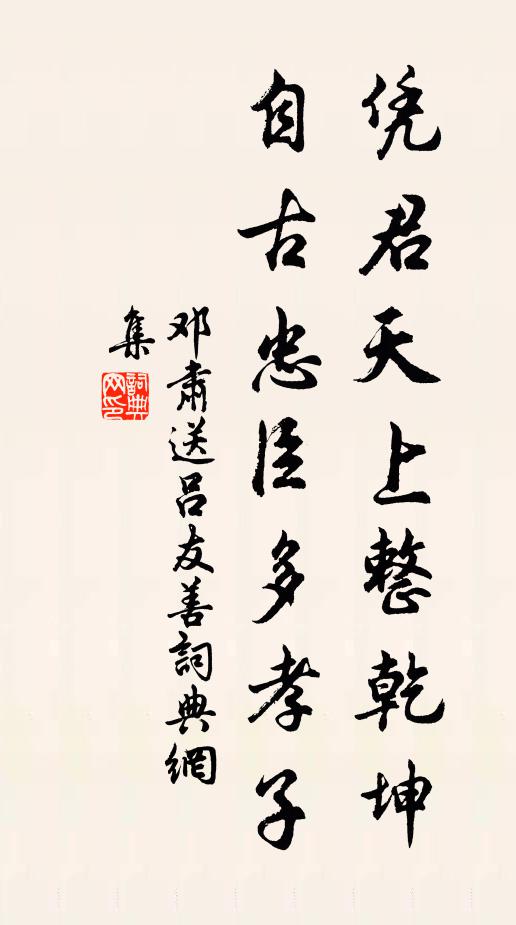 凭君天上整乾坤
自古忠臣多孝子
邓肃送吕友善詞典網
集
詞典
网印